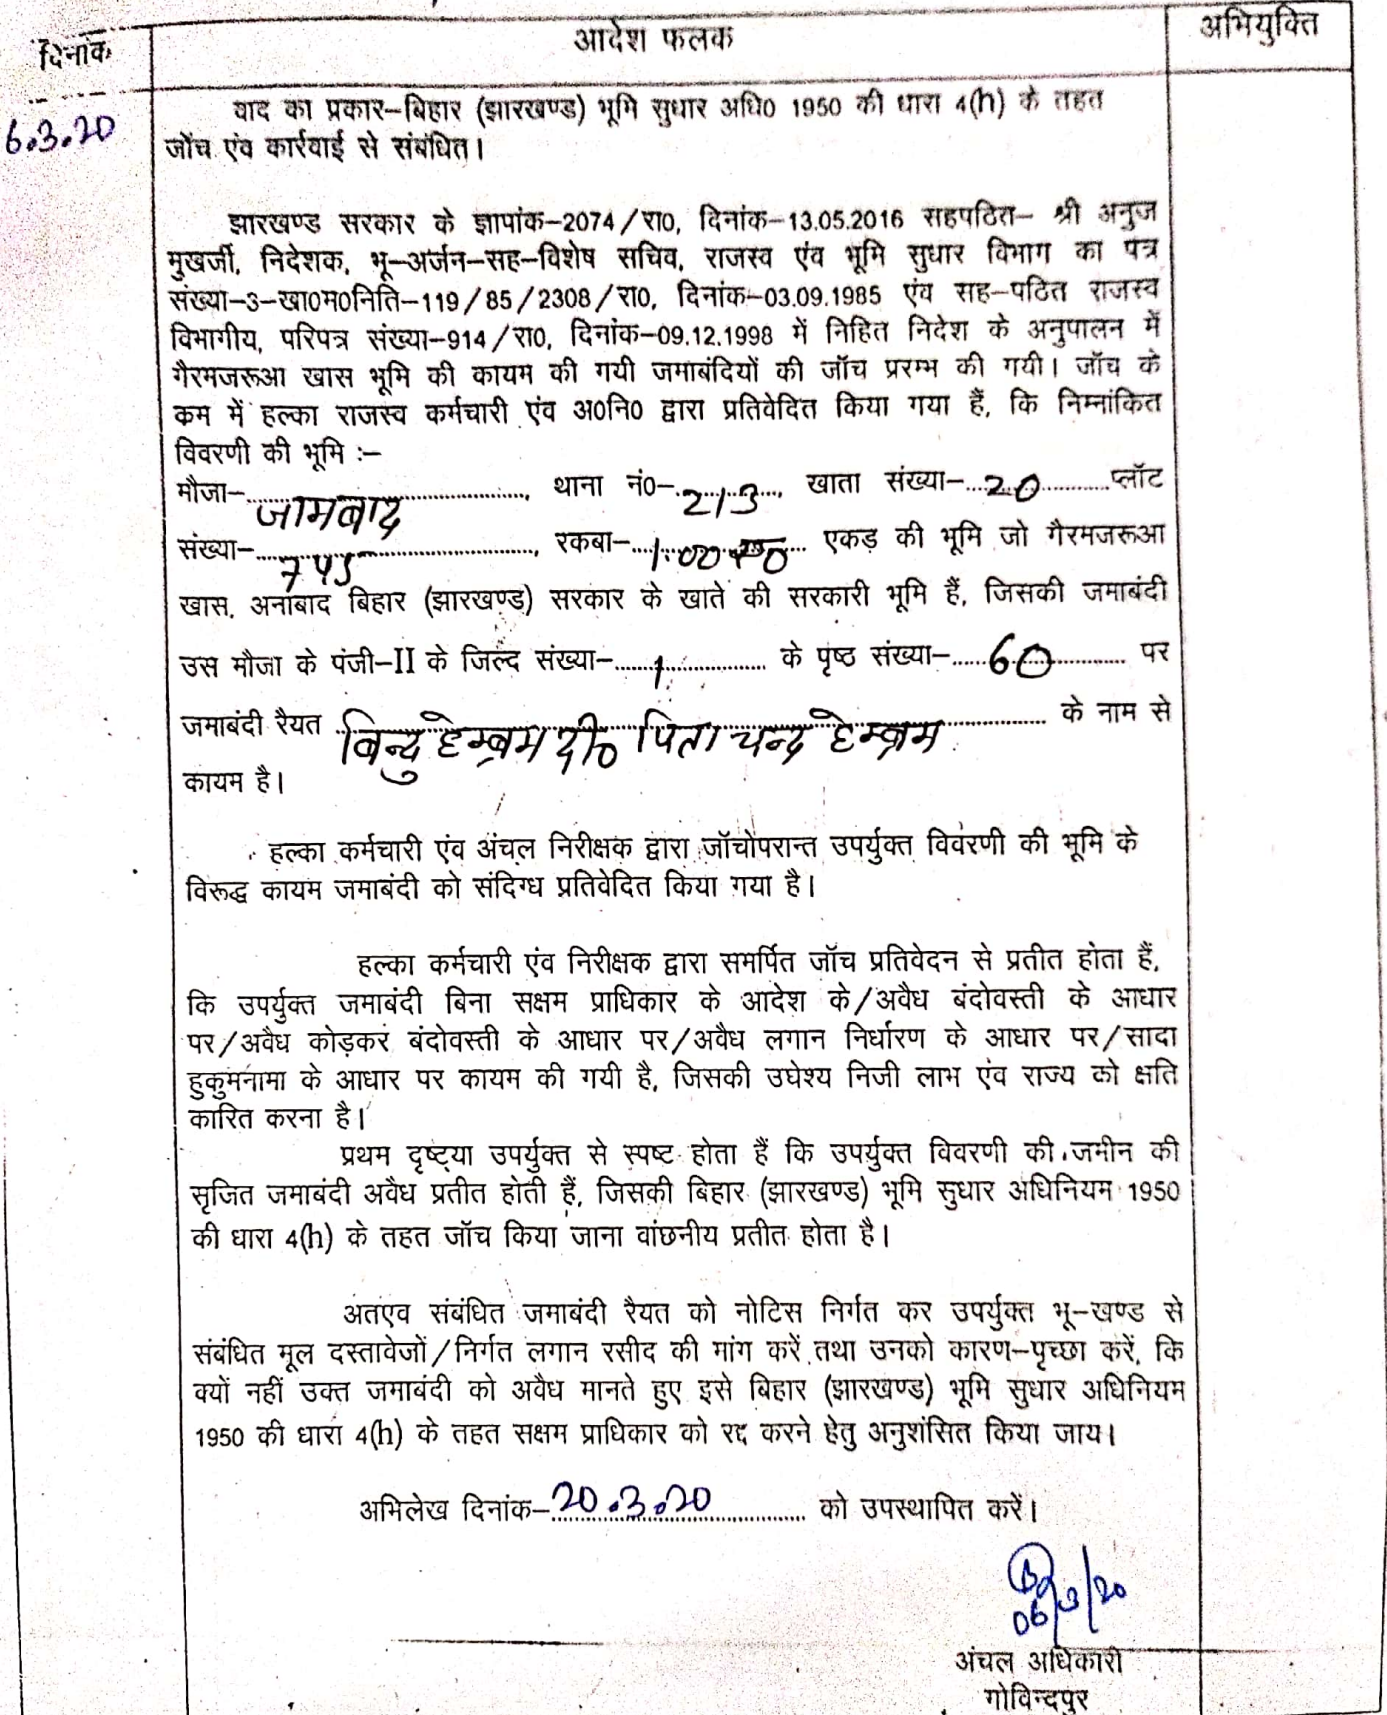 दिनांक
आदेश फलक
अभियुक्ति
6.3.20
वाद का प्रकार–बिहार (झारखण्ड) भूमि सुधार अधि0 1950 की धारा 4(h) के तहत
जाँच एंव कार्रवाई से संबंधित।
झारखण्ड सरकार के ज्ञापांक–2074/रा0, दिनांक–13.05.2016 सहपठित– श्री अनुज
मुखर्जी, निदेशक, भू–अर्जन–सह–विशेष सचिव, राजस्व एंव भूमि सुधार विभाग का पत्र
संख्या–3–खा0म0निति–119/85/2308/रा0, दिनांक–03.09.1985 एंव सह–पठित राजस्व
विभागीय, परिपत्र संख्या–914/रा0, दिनांक–09.12.1998 में निहित निदेश के अनुपालन में
गैरमजरूआ खास भूमि की कायम की गयी जमाबंदियों की जॉच प्ररम्भ की गयी। जॉच के
कम में हल्का राजस्व कर्मचारी एंव अ0नि0 द्वारा प्रतिवेदित किया गया हैं, कि निम्नांकित
विवरणी की भूमि :–
मौजा–जामबाद, थाना नं0–213, खाता संख्या–20 प्लॉट
संख्या–745, रकबा–1.00 ए0 एकड़ की भूमि जो गैरमजरूआ
खास, अनाबाद बिहार (झारखण्ड) सरकार के खाते की सरकारी भूमि हैं, जिसकी जमाबंदी
उस मौजा के पंजी–II के जिल्द संख्या–1 के पृष्ठ संख्या–60 पर
जमाबंदी रैयत बिन्दु हेम्ब्रम दी0 पिता चन्द्र हेम्ब्रम के नाम से
कायम है।
हल्का कर्मचारी एंव अंचल निरीक्षक द्वारा जॉचोपरान्त उपर्युक्त विवरणी की भूमि के
विरूद्ध कायम जमाबंदी को संदिग्ध प्रतिवेदित किया गया है।
हल्का कर्मचारी एंव निरीक्षक द्वारा समर्पित जॉच प्रतिवेदन से प्रतीत होता हैं,
कि उपर्युक्त जमाबंदी बिना सक्षम प्राधिकार के आदेश के/अवैध बंदोवस्ती के आधार
पर/अवैध कोड़कर बंदोवस्ती के आधार पर/अवैध लगान निर्धारण के आधार पर/सादा
हुकुमनामा के आधार पर कायम की गयी है, जिसकी उघेश्य निजी लाभ एंव राज्य को क्षति
कारित करना है।
प्रथम दृष्ट्या उपर्युक्त से स्पष्ट होता हैं कि उपर्युक्त विवरणी की जमीन की
सृजित जमाबंदी अवैध प्रतीत होती हैं, जिसकी बिहार (झारखण्ड) भूमि सुधार अधिनियम 1950
की धारा 4(h) के तहत जॉच किया जाना वांछनीय प्रतीत होता है।
अतएव संबंधित जमाबंदी रैयत को नोटिस निर्गत कर उपर्युक्त भू–खण्ड से
संबंधित मूल दस्तावेजों/निर्गत लगान रसीद की मांग करें तथा उनको कारण–पृच्छा करें, कि
क्यों नहीं उक्त जमाबंदी को अवैध मानते हुए इसे बिहार (झारखण्ड) भूमि सुधार अधिनियम
1950 की धारा 4(h) के तहत सक्षम प्राधिकार को रद्द करने हेतु अनुशंसित किया जाय।
अभिलेख दिनांक–20.3.20 को उपस्थापित करें।
06/3/20
अंचल अधिकारी
गोविन्दपुर